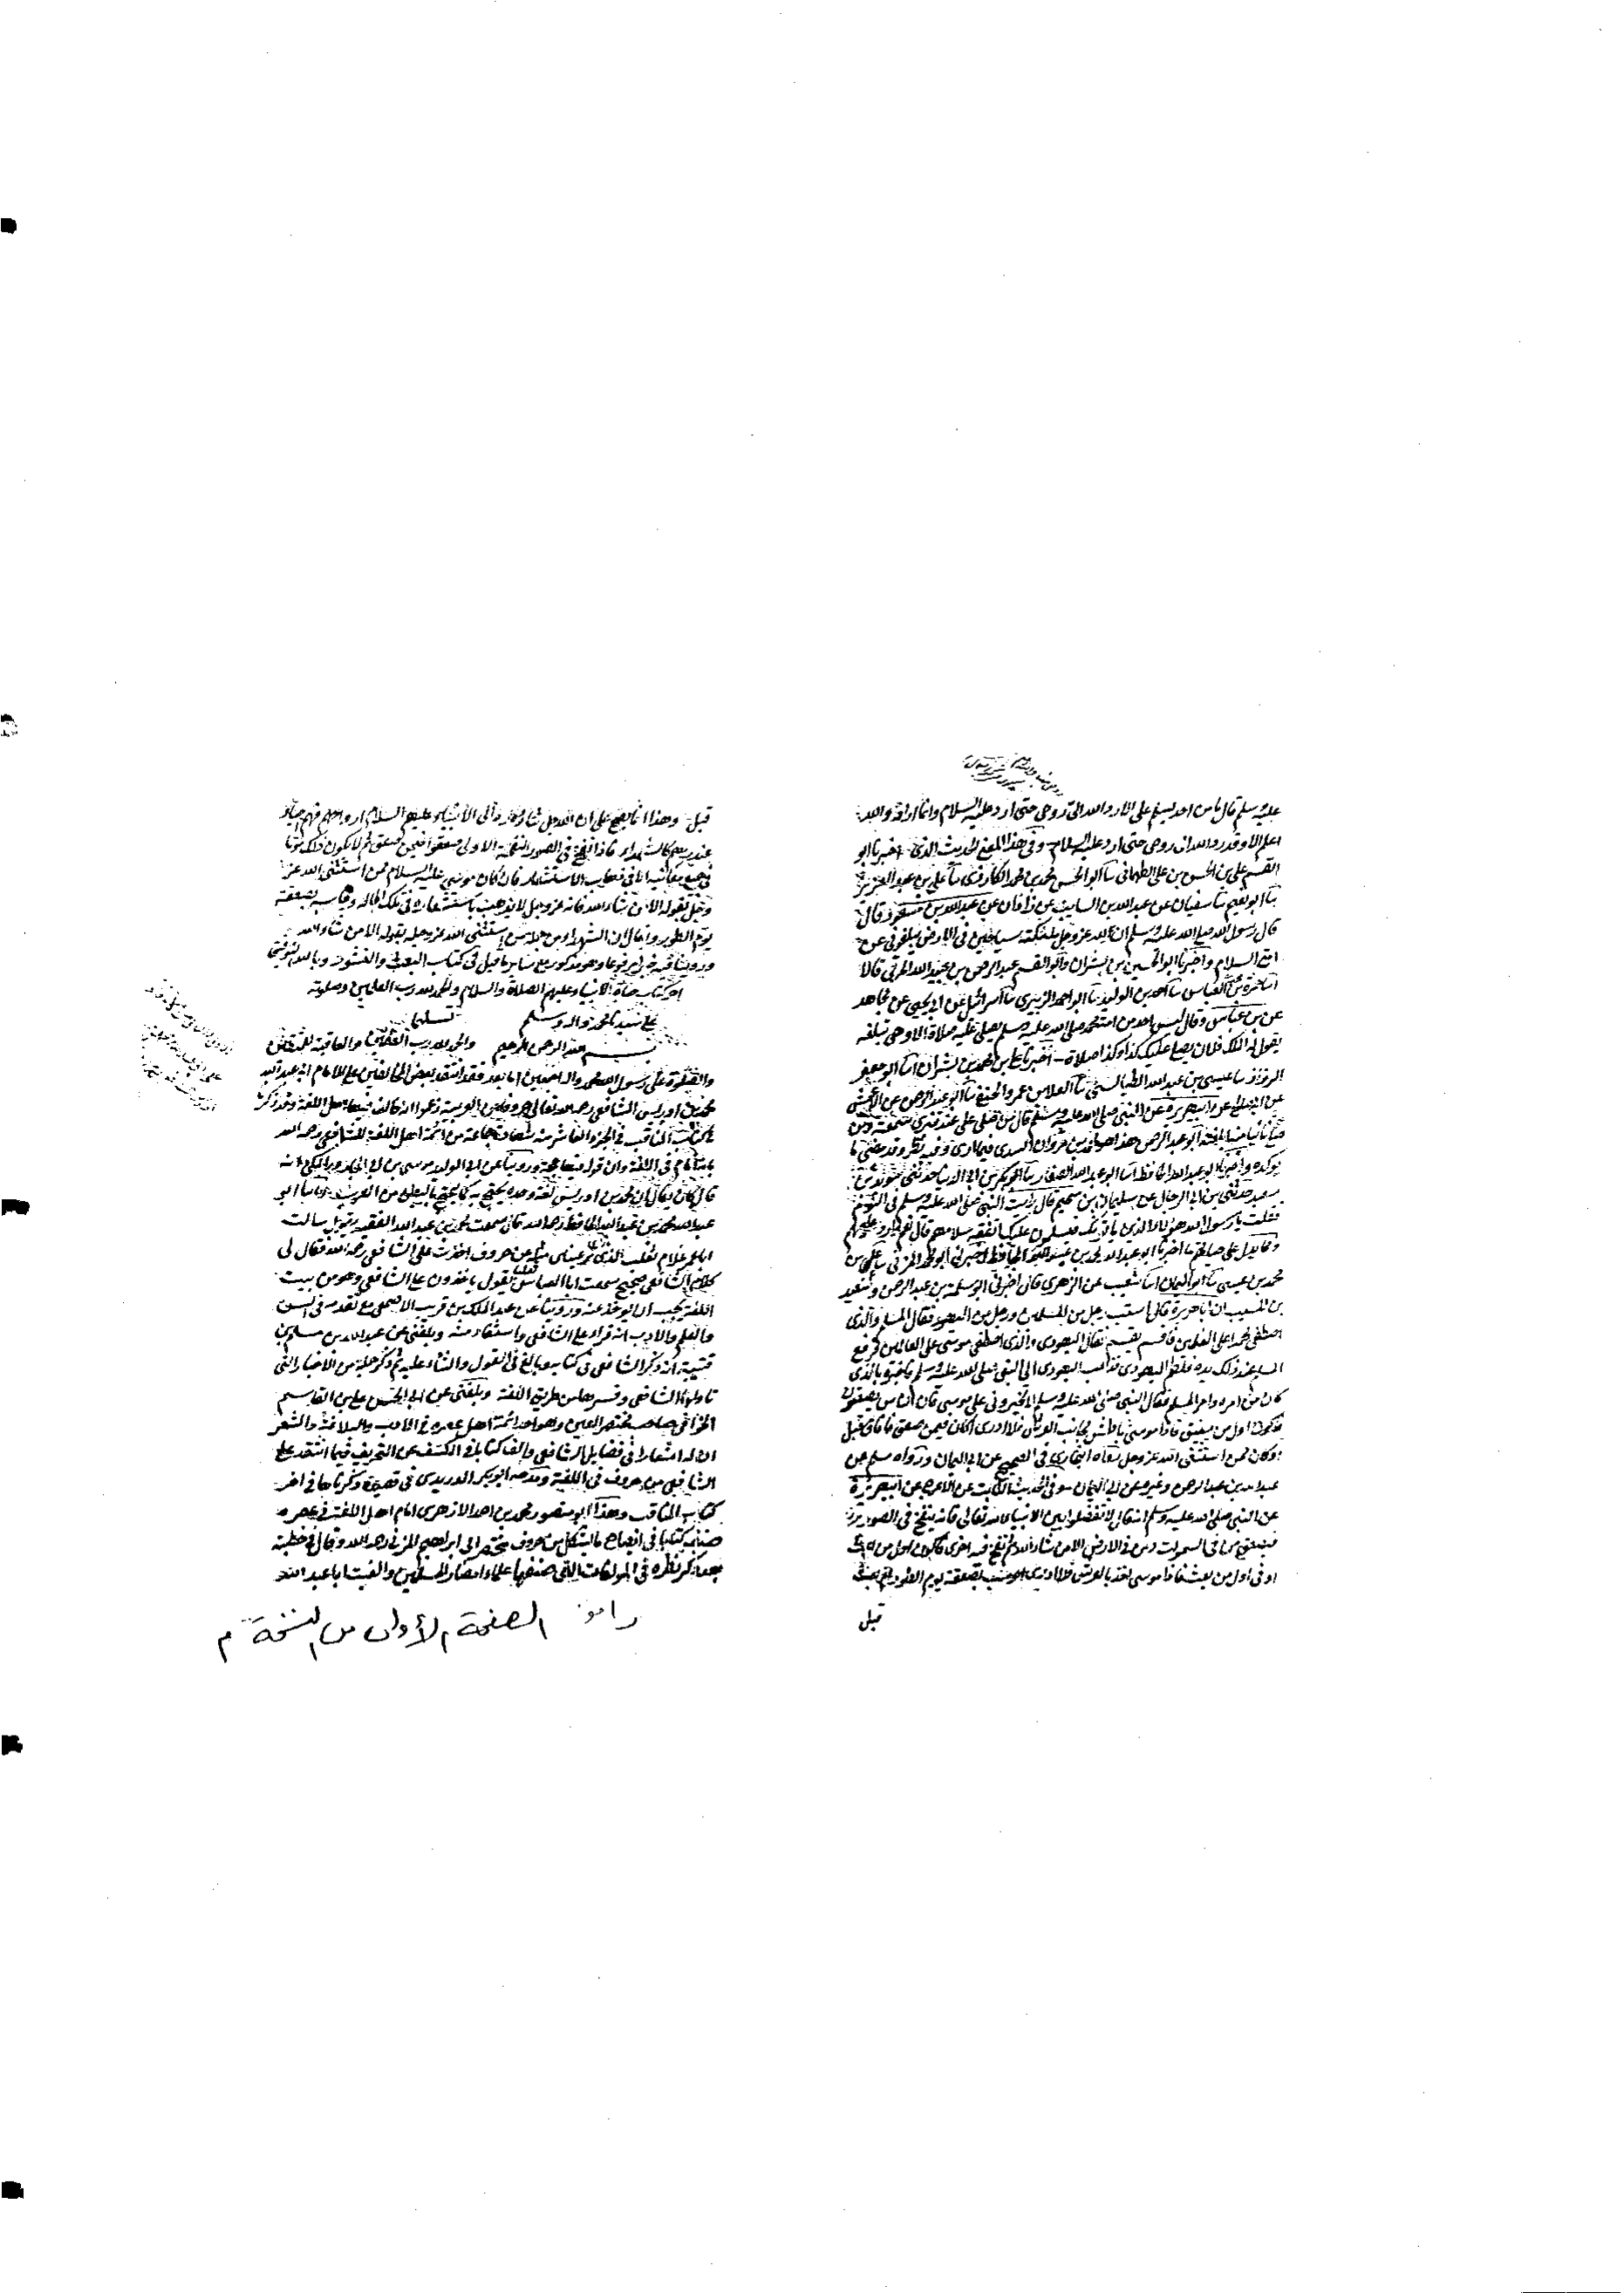 عليه وسلم قال ما من احد يسلم على الا رد الله الى روحي حتى ارد عليه السلام وانما اراد والله
اعلم الا وقد رد الله الى روحي حتى ارد عليه السلام وفي هذا المعنى الحديث الذي اخبرنا ابو
القسم علي بن الحسن بن علي الطهماني نا ابو الحسن محمد بن محمد الكارزي نا علي بن عبد العزيز
نا ابو نعيم نا سفيان عن عبد الله بن السايب عن زاذان عن عبد الله بن مسعود قال
قال رسول الله صلى الله عليه وسلم ان لله عز وجل ملئكة سياحين في الارض يبلغوني عن
امتي السلام واخبرنا ابو الحسين بن بشران وابو القسم عبد الرحمن بن عبيد الله الحرفي قالا
انا حمزة بن العباس نا احمد بن الوليد نا ابو احمد الزبيري نا اسرائيل عن ابي يحيى عن مجاهد
عن بن عباس وقال ليس احد من امة محمد صلى الله عليه وسلم يصلي عليه صلاة الا وهي تبلغه
يقول له الملك فلان يصلي عليك كذا وكذا صلاة اخبرنا علي بن محمد بن بشران انا ابو جعفر
الرزاز نا عيسى بن عبد الله الطيالسي نا العلا بن عمرو الحنفي نا ابو عبد الرحمن عن الاعمش
عن ابي صالح عن ابي هريرة عن النبي صلى الله عليه وسلم قال من صلى علي عند قبري سمعته ومن
صلى علي نائيا ابلغته ابو عبد الرحمن هذا هو محمد بن مروان السدي فيما ارى وفيه نظر وقد مضى ما
يوكده واخبرنا ابو عبد الله الحافظ انا ابو عبد الله الصفار نا ابو بكر بن ابي الدنيا حدثني سويد بن
سعيد حدثني بن ابي الرجال عن سليمان بن سحيم قال رايت النبي صلى الله عليه وسلم في النوم
فقلت يا رسول الله هؤلاء الذين ياتونك فيسلمون عليك اتفقه سلامهم قال نعم وارد عليهم
ومما يدل على حياتهم ما اخبرنا ابو عبد الله محمد بن عبد الله الحافظ اخبرني ابو محمد المزني نا علي بن
محمد بن عيسى نا ابو اليمان انا شعيب عن الزهري قال اخبرني ابو سلمة بن عبد الرحمن وسعيد
بن المسيب ان ابا هريرة قال استب رجل من المسلمين ورجل من اليهود فقال المسلم والذي
اصطفى محمدا على العلمين فاقسم بقسم فقال اليهودي والذي اصطفى موسى على العالمين فرفع
المسلم عند ذلك يده فلطم اليهودي فذهب اليهودي الى النبي صلى الله عليه وسلم فاخبره بالذي
كان من امره وامر المسلم فقال النبي صلى الله عليه وسلم لا تخيروني على موسى فان الناس يصعقون
فاكون اول من يفيق فاذا موسى باطش بجانب العرش فلا ادري اكان فيمن صعق فافاق قبلي
او كان ممن استثنى الله عز وجل رواه البخاري في الصحيح عن ابي اليمان ورواه مسلم عن
عبد الله بن عبد الرحمن وغيره عن ابي اليمان وفي الحديث الثابت عن الاعرج عن ابي هريرة
عن النبي صلى الله عليه وسلم انه قال لا تفضلوا بين الانبياء الله تعالى فانه ينفخ في الصور
فيصعق من في السموات ومن في الارض الا من شاء الله ثم ينفخ فيه اخرى فاكون اول من بعث
او في اول من بعث فاذا موسى اخذ بالعرش فلا ادري احوسب بصعقة يوم الطور ام بعث
قبلي
قبلي وهذا انما يصح على ان الله جل ثناؤه رد الى الانبياء عليهم السلام ارواحهم فهم احياء
عند ربهم كالشهداء فاذا نفخ في الصور النفخة الاولى صعقوا فيمن صعق ثم لا يكون ذلك موتا
في جميع معانيه الا في ذهاب الاستشعار فان كان موسى عليه السلام ممن استثنى الله عز
وجل بقوله الا من شاء الله فانه عز وجل لا يذهب باستشعاره في تلك الحالة ويحاسبه بصعقة
يوم الطور ويقال ان الشهداء من جملة من استثنى الله عز وجل بقوله الا من شاء الله
وروينا فيه خبرا مرفوعا وهو مذكور مع ساير ما قيل في كتاب البعث والنشور وبالله التوفيق
اخر كتاب حياة الانبياء عليهم الصلاة والسلام والحمد لله رب العلمين وصلوته
على سيدنا محمد واله وسلم تسليما
بسم الله الرحمن الرحيم والحمد لله رب العلمين والعاقبة للمتقين
والصلوة على رسول الله محمد واله اجمعين اما بعد فقد انتقد بعض المخالفين على الامام ابي عبد الله
محمد بن ادريس الشافعي رحمه الله تعالى حروفا من العربية زعموا انه خالف فيها اهل اللغة وقد ذكرت
في كتاب المناقب في الجزء العاشر منه شهادة جماعة من ائمة اهل اللغة للشافعي رحمه الله
بانه امام في اللغة وان قوله فيها حجة وروينا عن ابي الوليد موسى بن ابي الجارود المكي انه
قال كان يقال ان محمد بن ادريس لغة وحده يحتج به كما يحتج بالبطن من العرب انا ابو
عبد الله محمد بن عبد الله الحافظ رحمه الله قال سمعت محمد بن عبد الله الفقيه يقول سالت
ابا عمر غلام ثعلب الذي لم تر عيناي مثله عن حروف اخذت على الشافعي رحمه الله فقال لي
كلام الشافعي صحيح سمعت ابا العباس ثعلبا يقول ياخذون على الشافعي وهو من بيت
اللغة يجب ان يوخذ عنه وروينا عن عبد الملك بن قريب الاصمعي مع تقدمه في السن
والعلم والادب انه قرا على الشافعي واستفاد منه وبلغني عن عبد الله بن مسلم بن
قتيبة انه ذكر الشافعي في كتابه وبالغ في القول والثناء عليه ثم ذكر جملة من الاخبار التي
تاولها الشافعي وفسرها من طريق اللغة وبلغني عن ابي الحسن علي بن القاسم
الخوافي صاحب مختصر العين وهو احد ائمة اهل عصره في الادب والبلاغة والشعر
ان له اشعارا في فضايل الشافعي والف كتابا في الكشف عن التحريف فيما انتقد على
الشافعي من حروف في اللغة ومدحه ابو بكر الدريدي في قصيدة ذكرناها في اخر
كتاب المناقب وهذا ابو منصور محمد بن احمد الازهري امام اهل اللغة في عصره
صنف كتابا في ايضاح ما اشكل من حروف مختصر ابي ابراهيم المزني رحمه الله وقال في خطبته
بعد ذكر نظره في المولفات التي صنفها علماء امصار المسلمين والفيت ابا عبد الله
راموز الصفحة الأولى من النسخة م